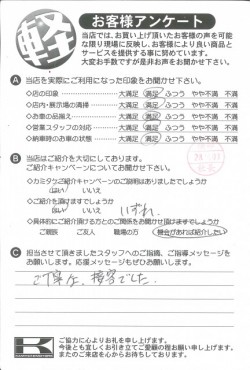 軽
お客様アンケート
当店では、お買い上げ頂いたお客様の声を可能
な限り現場に反映し、お客様により良い商品と
サービスを提供する事に努めています。
大変お手数ですが是非お声をお聞かせ下さい。
A 当店を実際にご利用になった印象をお聞かせ下さい。
◇店の印象 大満足 満足 ふつう やや不満 不満
◇店内・展示場の清掃 大満足 満足 ふつう やや不満 不満
◇お車の品揃え 大満足 満足 ふつう やや不満 不満
◇営業スタッフの対応 大満足 満足 ふつう やや不満 不満
◇納車時のお車の状態 大満足 満足 ふつう やや不満 不満
B 当店はご紹介を大切にしております。
ご紹介キャンペーンについてお聞かせ下さい。
◇カミタケご紹介キャンペーンのご説明はありましたでしょうか
はい いいえ
◇ご紹介を頂けますでしょうか
はい いいえ いずれ
◇具体的にご紹介頂ける方とのご関係をお聞かせ頂けますでしょうか
ご親戚 ご友人 職場の方 機会があれば紹介したい
C 担当させて頂きましたスタッフへのご指摘、ご指導メッセージを
お願いします。応援メッセージもぜひお願いします。
ご丁寧な、接客でした。
K
ご協力に心よりお礼を申し上げます。
今後とも宜しくお引き立てご愛顧の程お願い申し上げます。
またのご来店を心からお待ちしております。